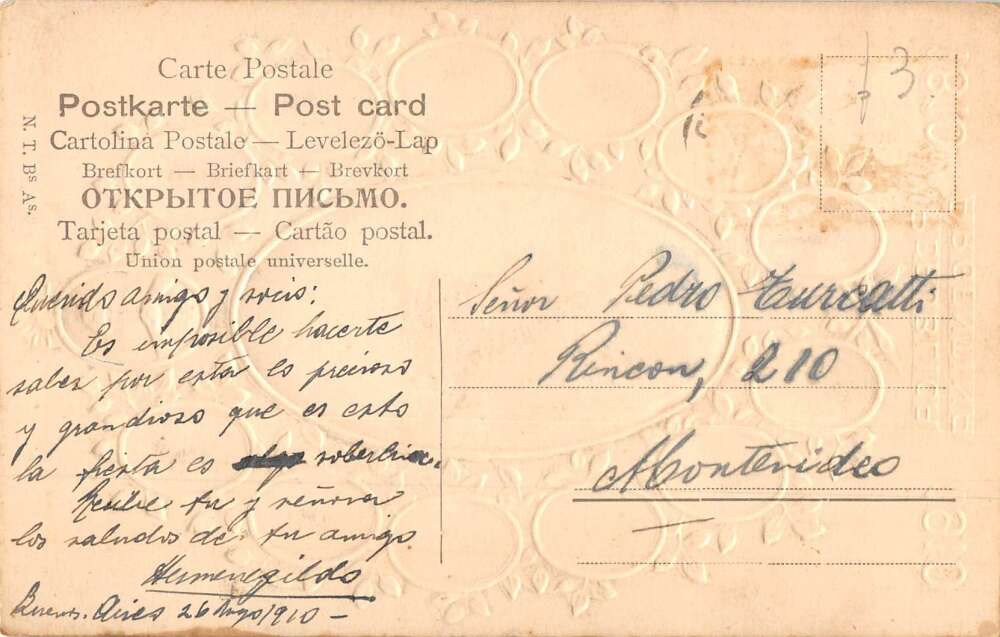 Carte Postale
Postkarte — Post card
Cartolina Postale — Levelező-Lap
Brefkort — Briefkart — Brevkort
ОТКРЫТОЕ ПИСЬМО.
Tarjeta postal — Cartão postal.
Union postale universelle.
N. T. Bs As.
Querido amigo y socio:
Es imposible hacerte
saber por esta lo precioso
y grandioso que es esto
la fiesta es soberbia.
Recibe tu y señora
los saludos de tu amigo
Hermenegildo
Buenos Aires 26 Mayo/910 —
Señor Pedro Turcatti
Rincon, 210
Montevideo
3.